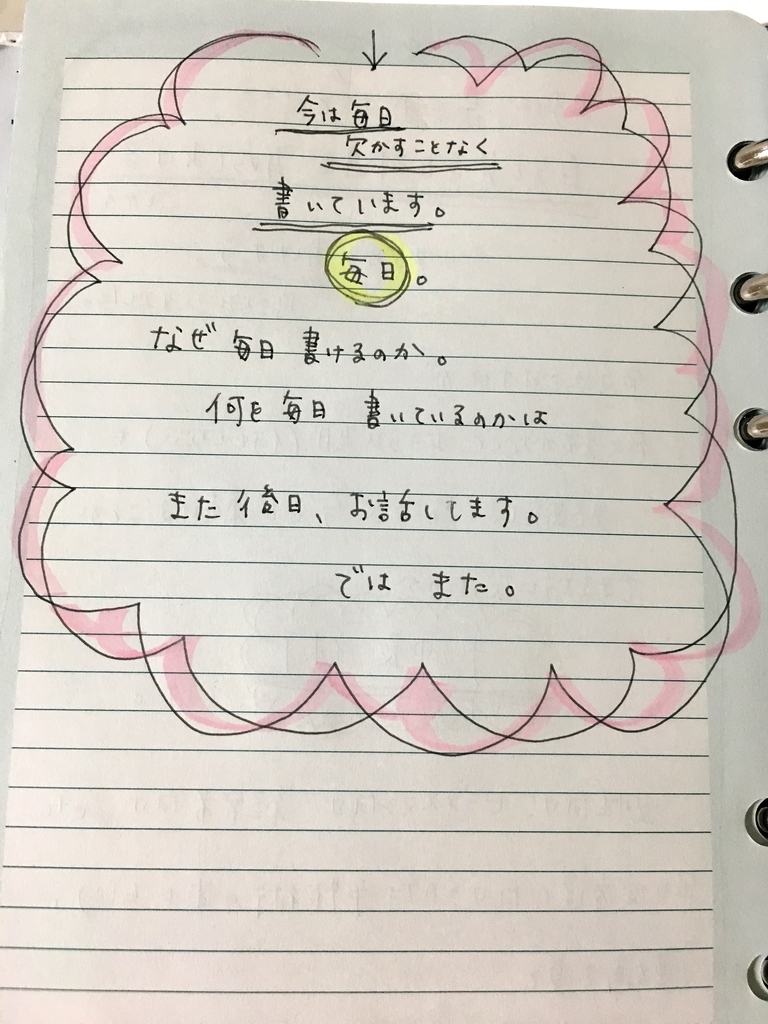 ↓
今は毎日
欠かすことなく
書いています。
毎日。
なぜ 毎日 書けるのか。
何を 毎日 書いているのかは
また後日、お話してます。
では また。